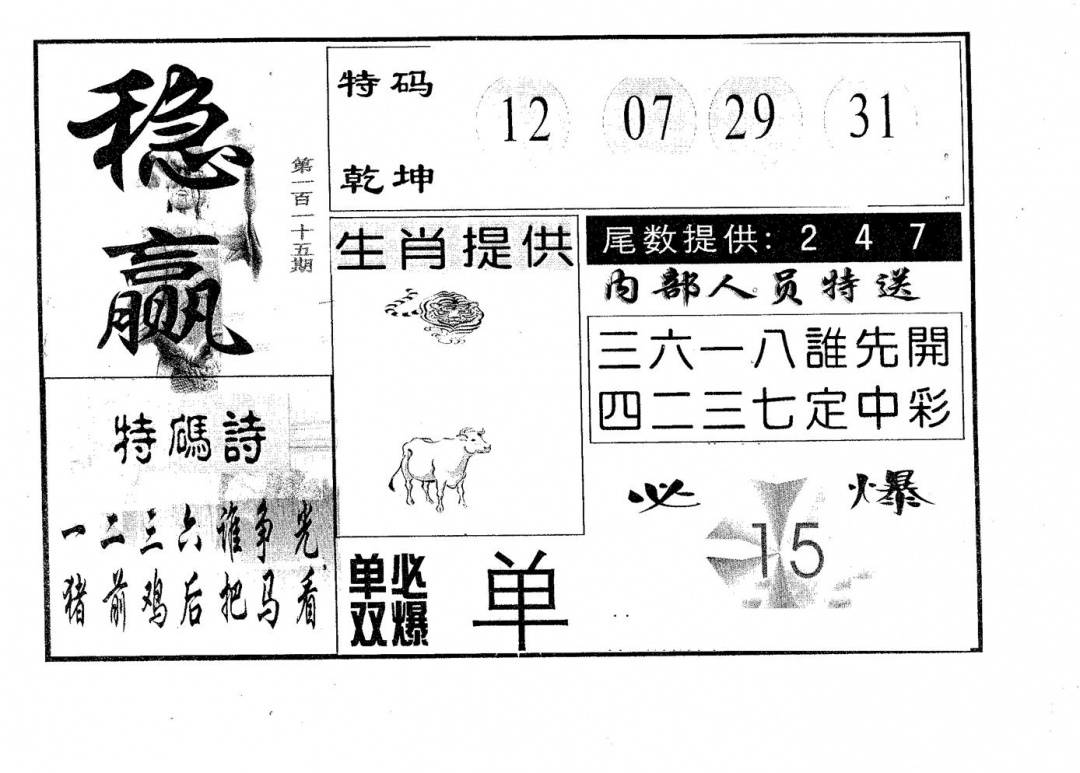 稳赢
第一百一十五期
特码
乾坤
12 07 29 31
生肖提供
尾数提供: 2 4 7
内部人员特送
三六一八誰先開
四二三七定中彩
特碼詩
一二三六谁争光
猪前鸡后把马看
单双
必爆
单
必爆
15